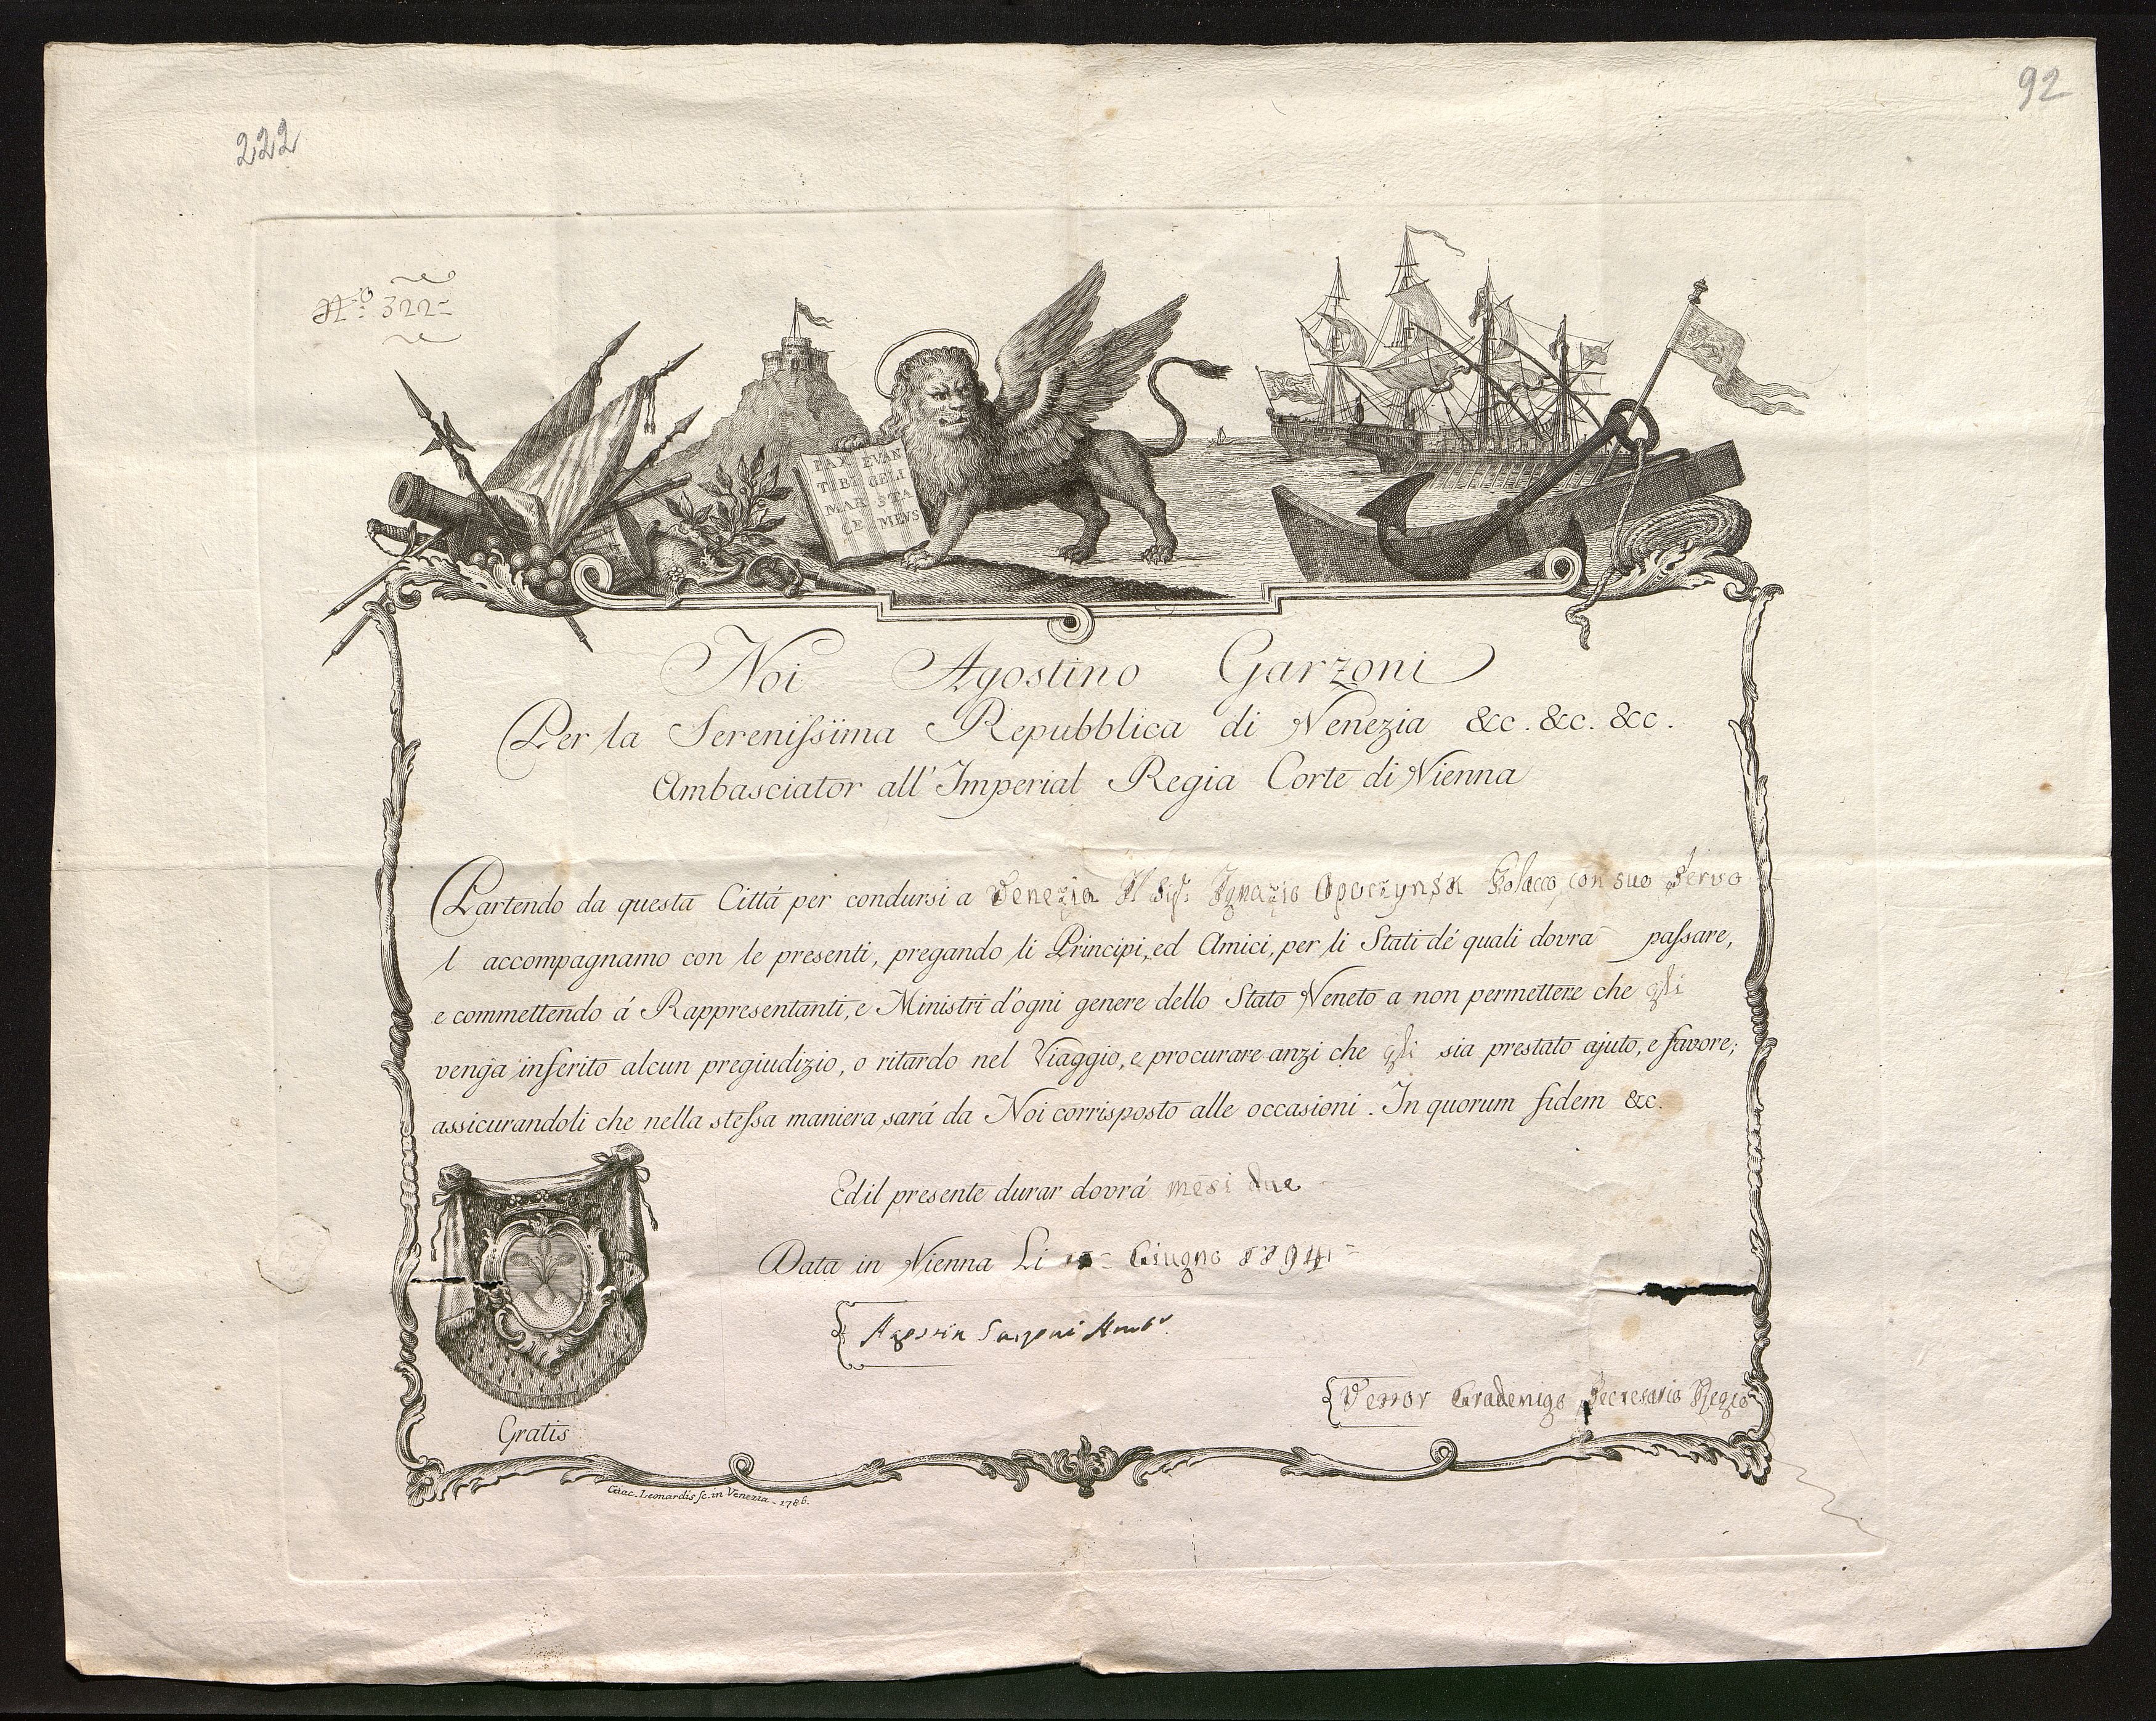 92
222
Nº: 322=
PAX EVAN
TIBI GELI
MAR STA
CE MEVS
Noi Agostino Garzoni
Per la Serenissima Repubblica di Venezia &c. &c. &c.
Ambasciator all' Imperial Regia Corte di Vienna
Partendo da questa Cittá per condursi a Venezia Il Sigr: Ignazio Opoczynsk Polacco, con suo Servo
l accompagnamo con le presenti, pregando li Principi, ed Amici, per li Stati dé quali dovra passare,
e commettendo á Rappresentanti, e Ministri d'ogni genere dello Stato Veneto a non permettere che gli
venga inferito alcun pregiudizio, o ritardo nel Viaggio, e procurare anzi che gli sia prestato ajuto, e favore;
assicurandoli che nella stessa maniera sará da Noi corrisposto alle occasioni. In quorum fidem &c.
Ed il presente durar dovrá mesi due
Data in Vienna Li Giugno 1794=
Agostin Garzoni Ambr
Vettor Gradenigo Secretario Regio
Gratis
Giac. Leonardis sc. in Venezia - 1786.